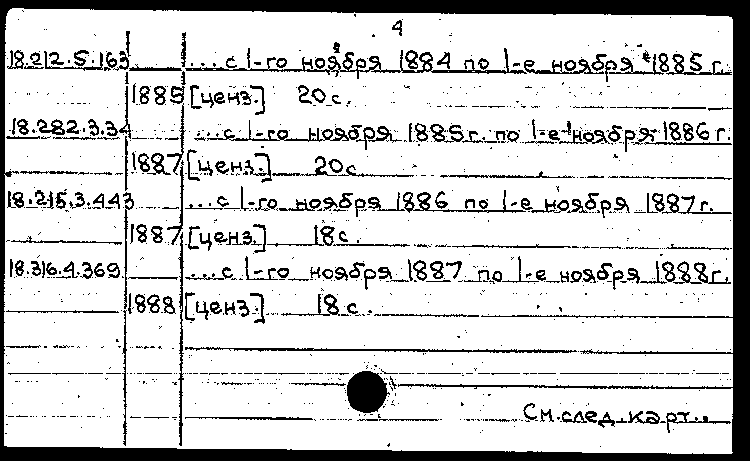 4
18.212.5.163 ...с 1-го ноября 1884 по 1-е ноября 1885 г.
1885 [ценз.] 20 с.
18.282.3.34 ...с 1-го ноября 1885 г. по 1-е ноября 1886 г.
1887 [ценз.] 20 с
18.215.3.443 ...с 1-го ноября 1886 по 1-е ноября 1887 г.
1887 [ценз.] 18 с.
18.316.4.369 ...с 1-го ноября 1887 по 1-е ноября 1888 г.
1888 [ценз.] 18 с.
См. след. карт..